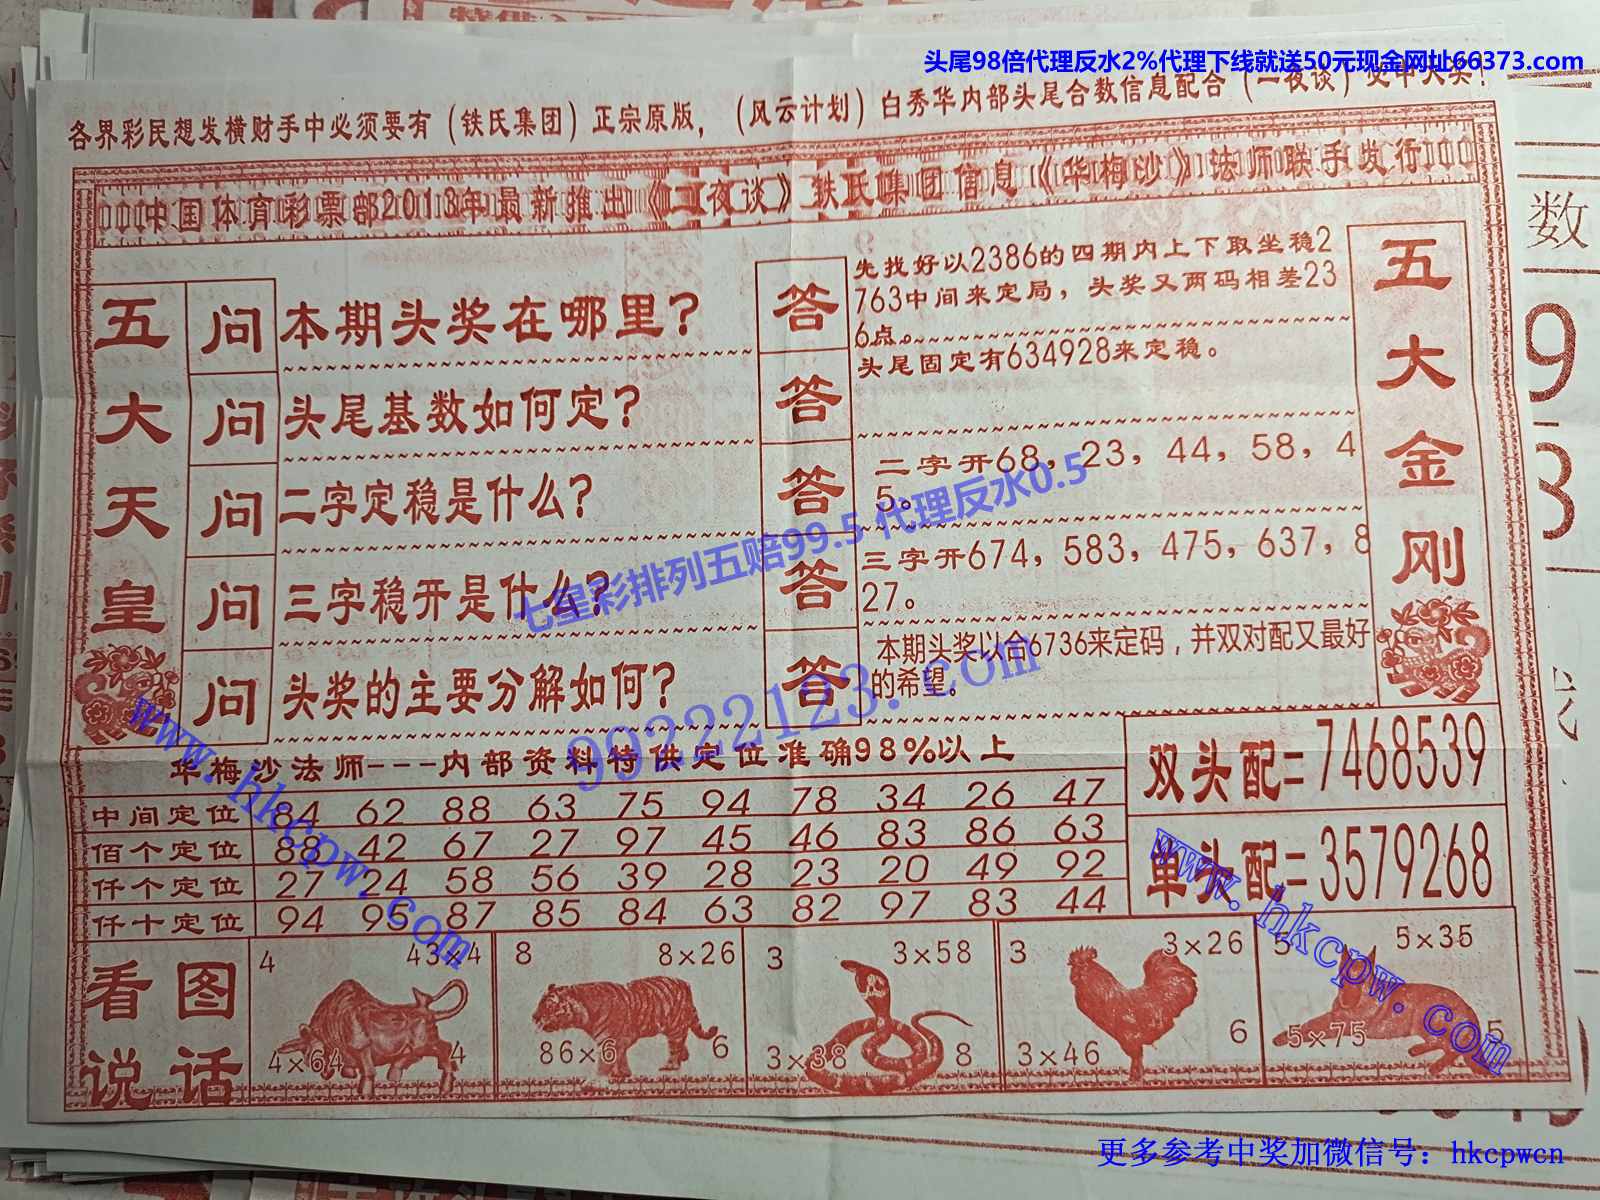 头尾98倍代理反水2%代理下线就送50元现金网址66373.com
各界彩民想发横财手中必须要有（铁氏集团）正宗原版，（风云计划）白秀华内部头尾合数信息配合（一夜谈）必中大奖！
中国体育彩票部2013年最新推出《一夜谈》铁氏集团信息《华梅沙》法师联手发行
五大天皇
问 本期头奖在哪里？
答 先找好以2386的四期内上下取坐稳2
763中间来定局，头奖又两码相差23
6点。
问 头尾基数如何定？
答 头尾固定有634928来定稳。
问 二字定稳是什么？
答 二字开68，23，44，58，4
5。
问 三字稳开是什么？
答 三字开674，583，475，637，8
27。
问 头奖的主要分解如何？
答 本期头奖以合6736来定码，并双对配又最好
的希望。
五大金刚
七星彩排列五赔99.5 代理反水0.5
99222123.com
www.hkcpw.com
华梅沙法师---内部资料特供定位准确98%以上
中间定位 84 62 88 63 75 94 78 34 26 47
佰个定位 88 42 67 27 97 45 46 83 86 63
仟个定位 27 24 58 56 39 28 23 20 49 92
仟十定位 94 95 87 85 84 63 82 97 83 44
双头配=7468539
单头配=3579268
www.hkcpw.com
看图
说话
4 43×4
4×64 4
8 8×26
86×6 6
3 3×58
3×38 8
3 3×26
3×46 6
5 5×35
5×75 5
数
9
3
更多参考中奖加微信号：hkcpwcn